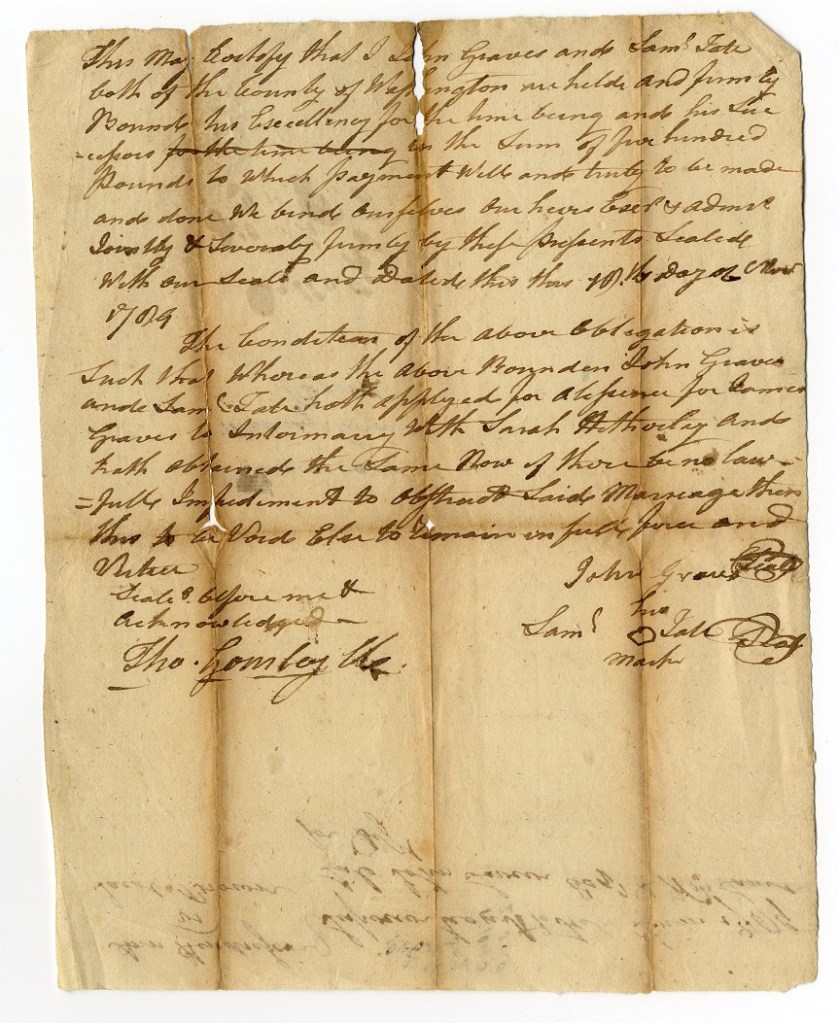 This May Certify that I John Graves and Saml Tate
both of the County of Washington are helde and firmly
Bounde his Excellency for the time being and his Suc
=cessors for the time being in the Sum of five hundred
Pounds to which payment Well and truly to be made
and done We bind ourselves our heirs Exers & admrs
Jointly & Severaly firmly by these presents Sealed
With our Seals and Dated this this 18th Day of Novr
1789
The Condition of the above obligation is
Such that Whereas the above Bounden John Graves
and Saml Tate hath applyed for a lisence for James
Graves to Intermarry With Sarah Hetherley and
hath obtained the Same Now if there be no law=
=full Impediment to obstruct Said Marriage then
this to be Void Else to remain in full force and
Virtue
John Graves Seal
Seald before me &
his
Acknowledged
Saml Tate Seal
mark
Tho. Gomley